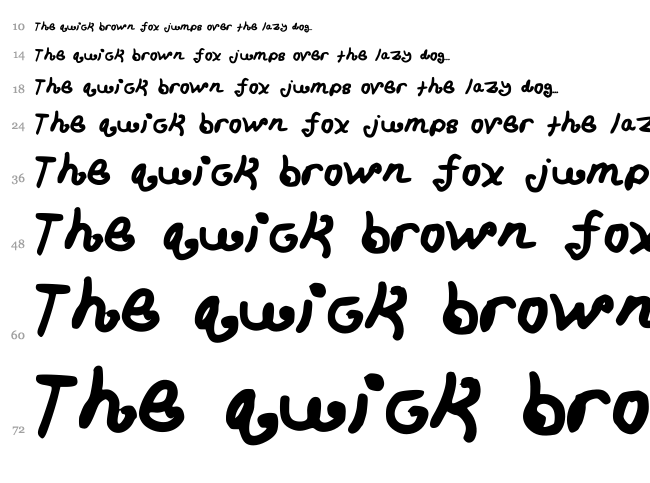 10 The quick brown fox jumps over the lazy dog..
14 The quick brown fox jumps over the lazy dog..
18 The quick brown fox jumps over the lazy dog..
24 The quick brown fox jumps over the laz
36 The quick brown fox jump
48 The quick brown fox
60 The quick brown
72 The quick bro